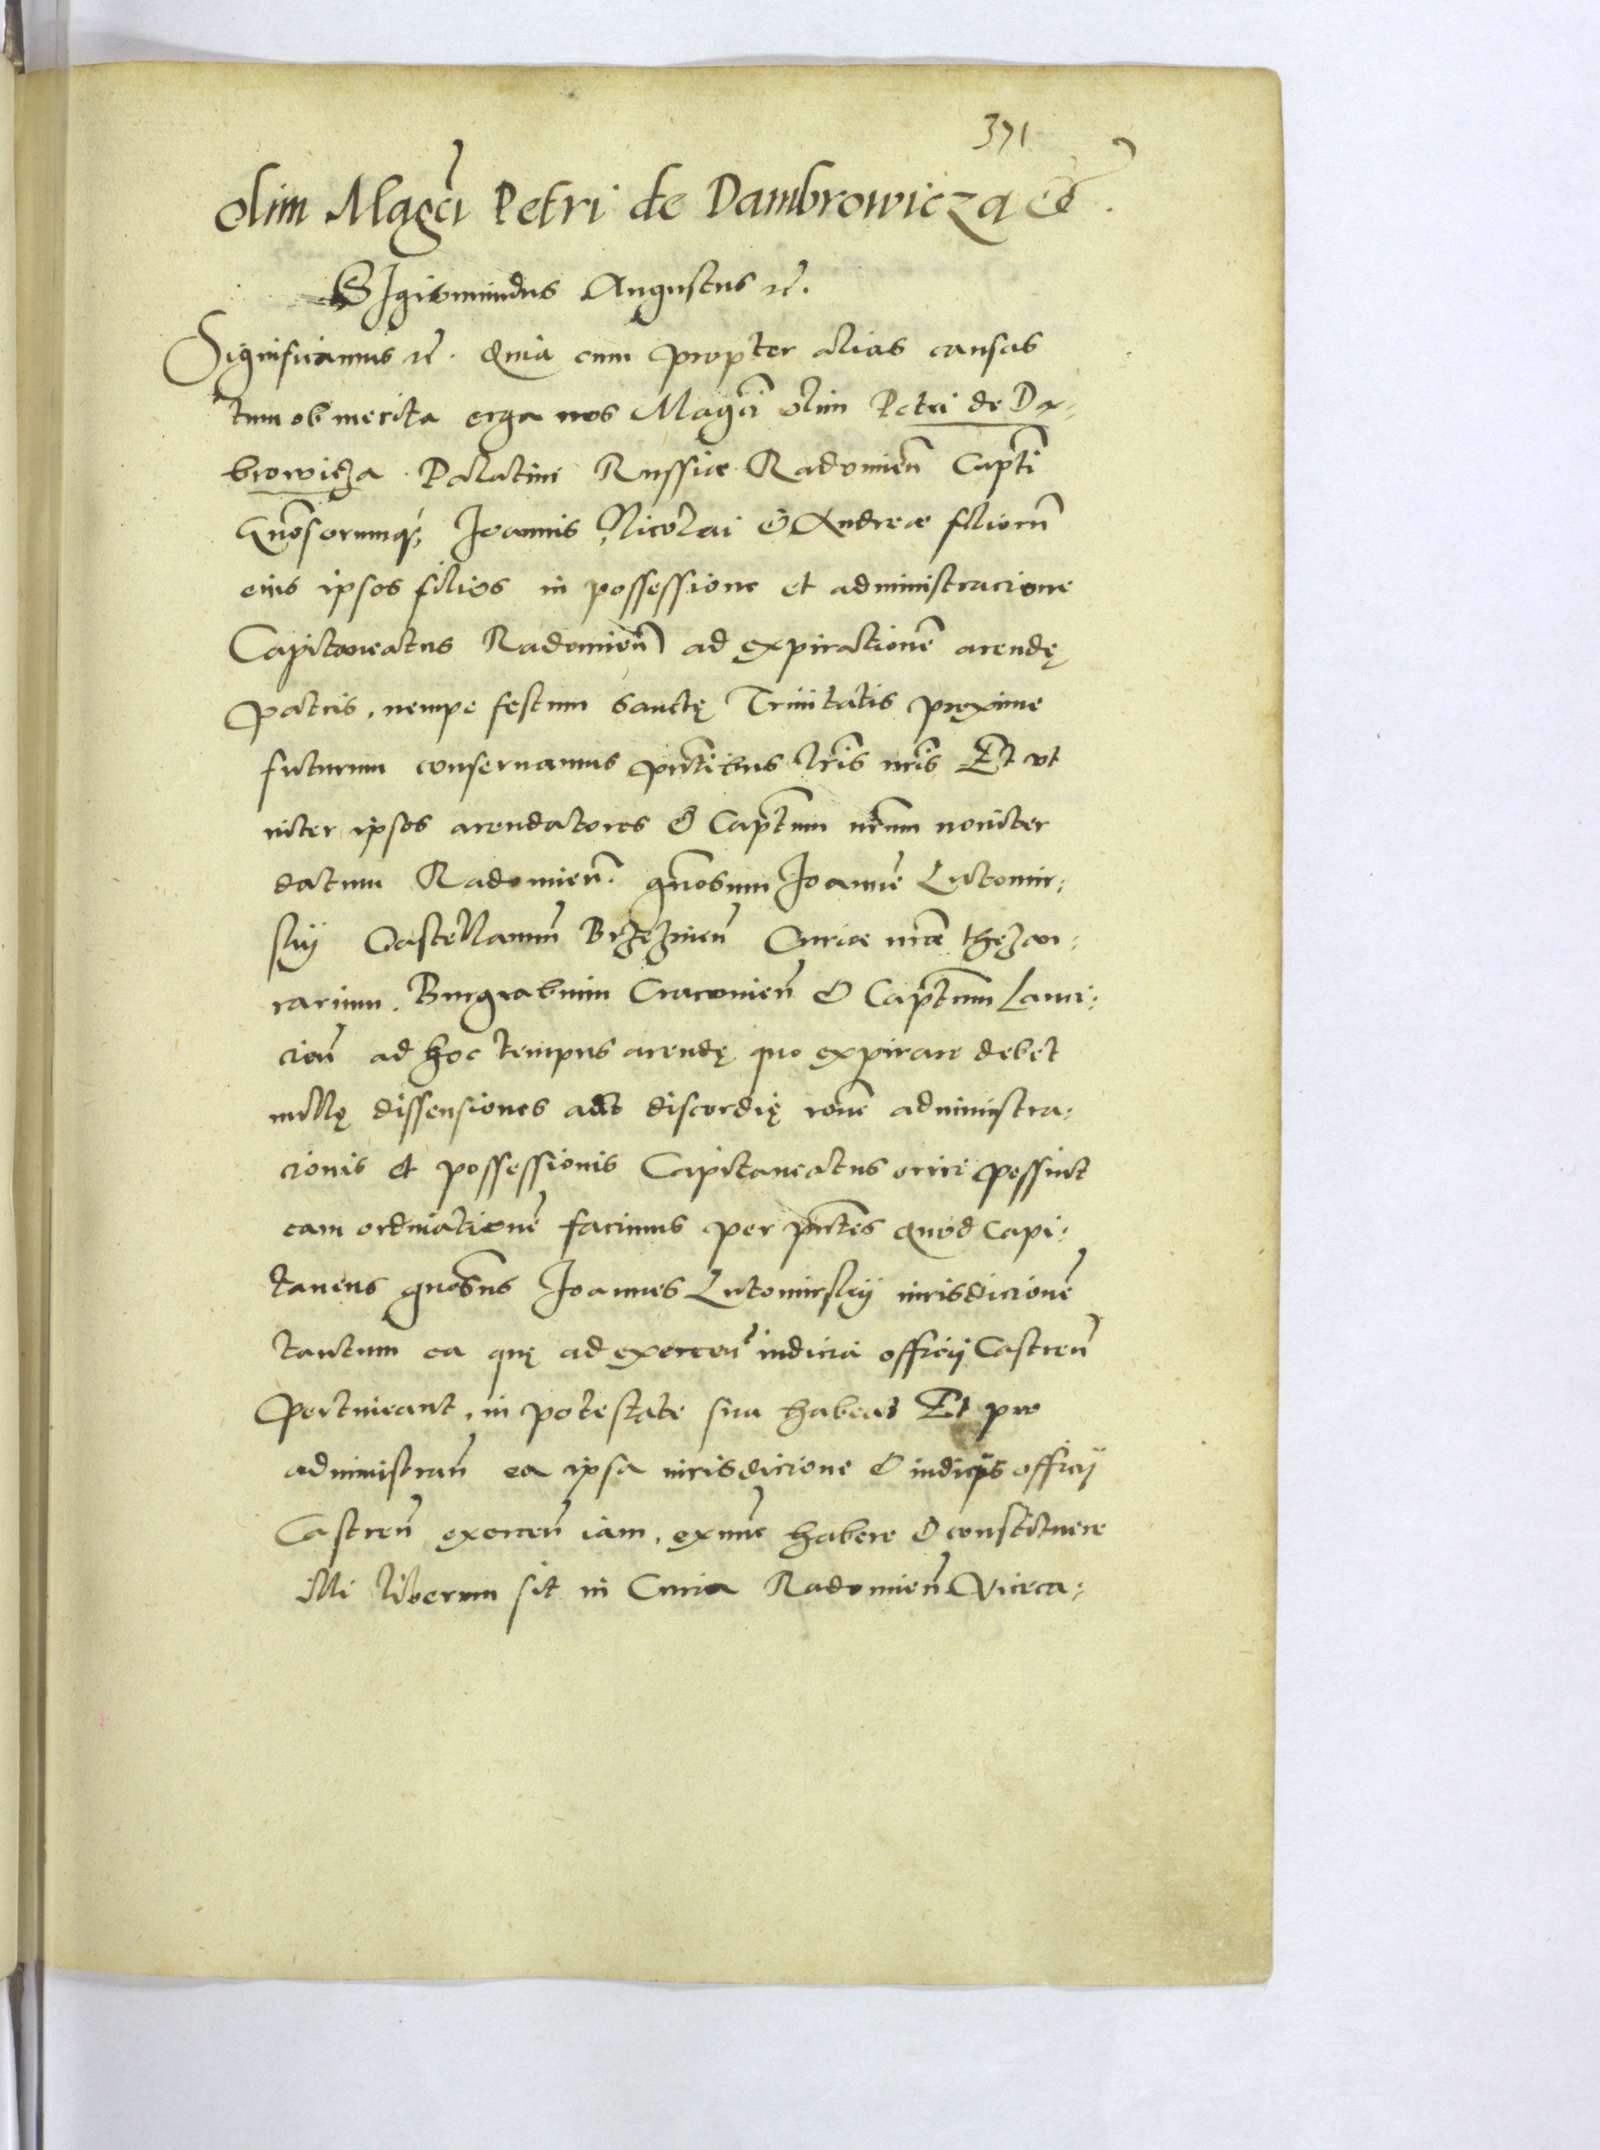 371
olim Magci Petri de Dambrowicza etc.
Sigismundus Augustus etc.
Significamus etc. Quia cum propter alias causas
tum ob merita erga nos Magci olim Petri de Da-
browicza Palatini Russiae Radomien Capti
Gnosorumq; Joannis Nicolai & Andreae filiorum
eius ipsos filios in possessione et administracione
Capitaneatus Radomien ad expirationem arendę
patris, nempe festum sanctę Trinitatis proxime
futurum conseruamus pntibus lris nris Et ut
inter ipsos arendatores & Captum nrum noviter
datum Radomien. gnosum Joannem Lutomir-
skij Castellanum Brzezinen Curiae nrae thezau-
rarium. Burgrabium Cracovien & Captum Lawi-
cien ad hoc tempus arendę quo expirare debet
nullę dissensiones aut discordię rone administra-
cionis et possessionis Capitaneatus oriri possint
eam ordinationem facimus per pntes quod Capi-
taneus gnosus Joannes Lutomirskij iurisdicionem
tantum ea quę ad exercen iudicia officij Castren
pertineant, in potestate sua habeat Et pro
administran ea ipsa iurisdicione & iudicijs officij
Castren exercen iam, exnunc habere & constituere
illi liberum sit in Curia Radomien Viceca-